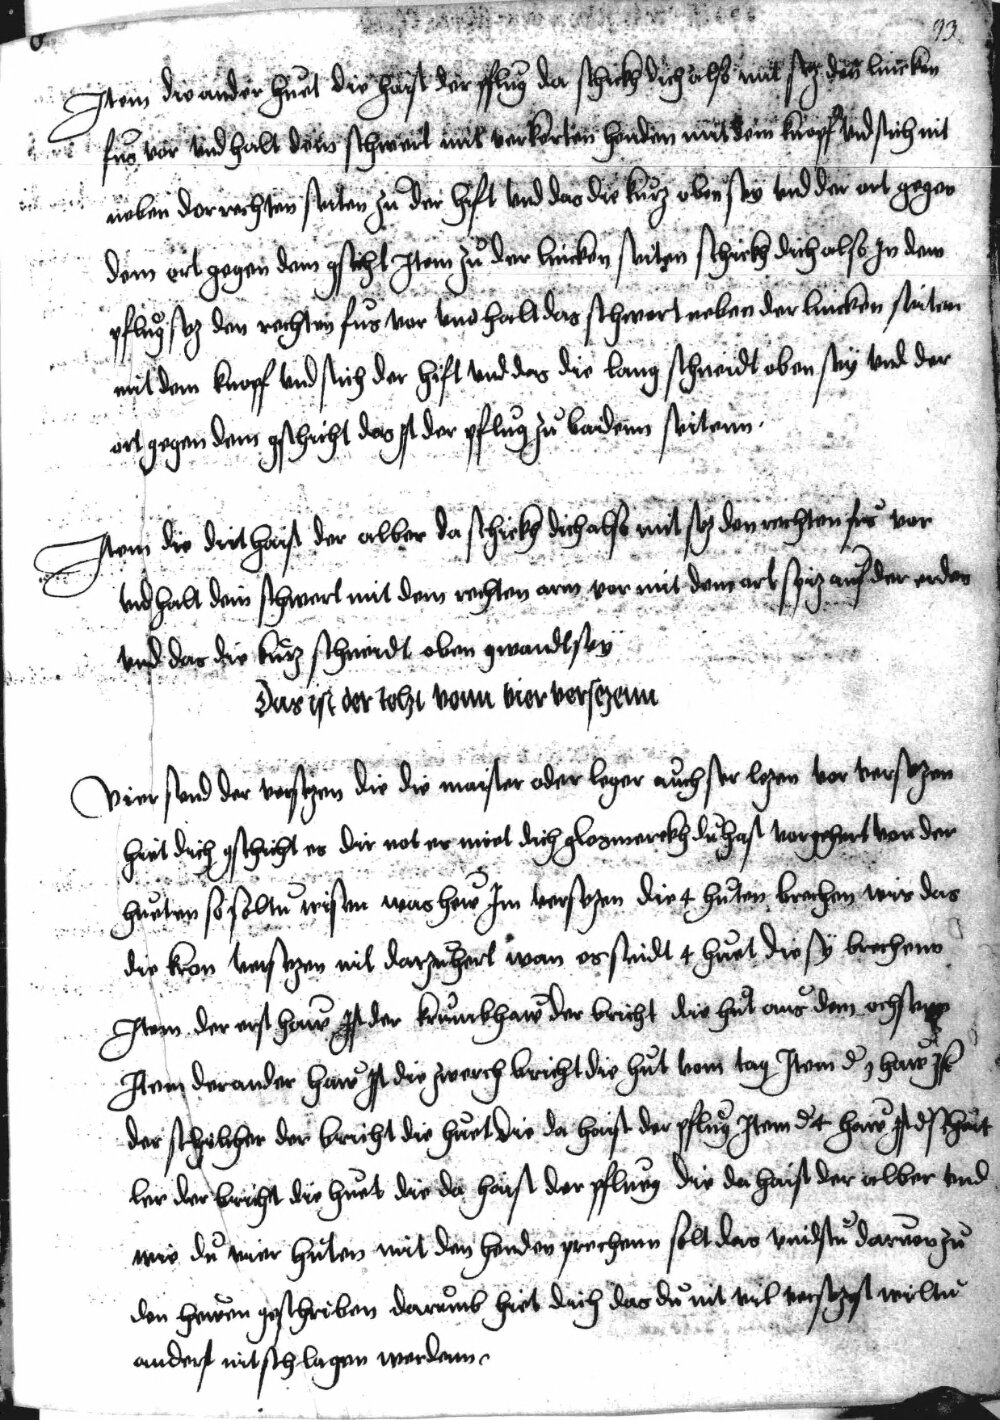 93
Item die ander huet die haist der pflug da schickh dich also mit setz den lincken
fus vor vnd halt dein schwert mit verkerten henden mit dem knopf vndsich nit
neben der rechten seiten zu der hift vnd das die kurz oben sey vnd der ort gegen
dem ort gegen dem gsicht Item zu der lincken seiten schickh dich also In dem
pflug setz den rechten fus vor vnd halt das schwert neben der lincken seiten
mit dem knopf vndsich der hift vnd das die lang schneidt oben sey vnd der
ort gegen dem gschicht das ist der pflug zu baidenn seitenn.
Item die drit haist der alber da schickh dich also mit setz den rechten fus vor
vnd halt dein schwert mit dem rechten arm vor mit dem ort spiz auf der erden
vnd das die kurz schneidt oben gwandt sey
Das ist der text vonn vier versezenn
Vier send der versetzen die die maister oder leger auch ser lezen vor versetzen
hiet dich gschicht es dir not er miet dich glosmerckh du hast vorgehert von der
hueten so soltu wissen was hew Im versetzen die 4 huten brechen wis das
die kron versetzen nit darzuhert wan es seindt 4 huet die sy brechens
Item der erst haw Ist der krumbhaw der bricht die hut aus dem ochsenn
Item der ander haw Ist die zwerch bricht die hut vom tag Item d 3 haw Ist
der schilcher der bricht die huet die da haist der pflug Item d 4 haw Ist d schait
ler der bricht die huet die da haist der pflueg die da haist der alber vnd
wie du vier huten mit den henden prechenn solt das vindstu darvor zu
den hewen geschriben darumb hiet dich das du nit vil versetzst wiltu
anderst nit schlagen werdenn.